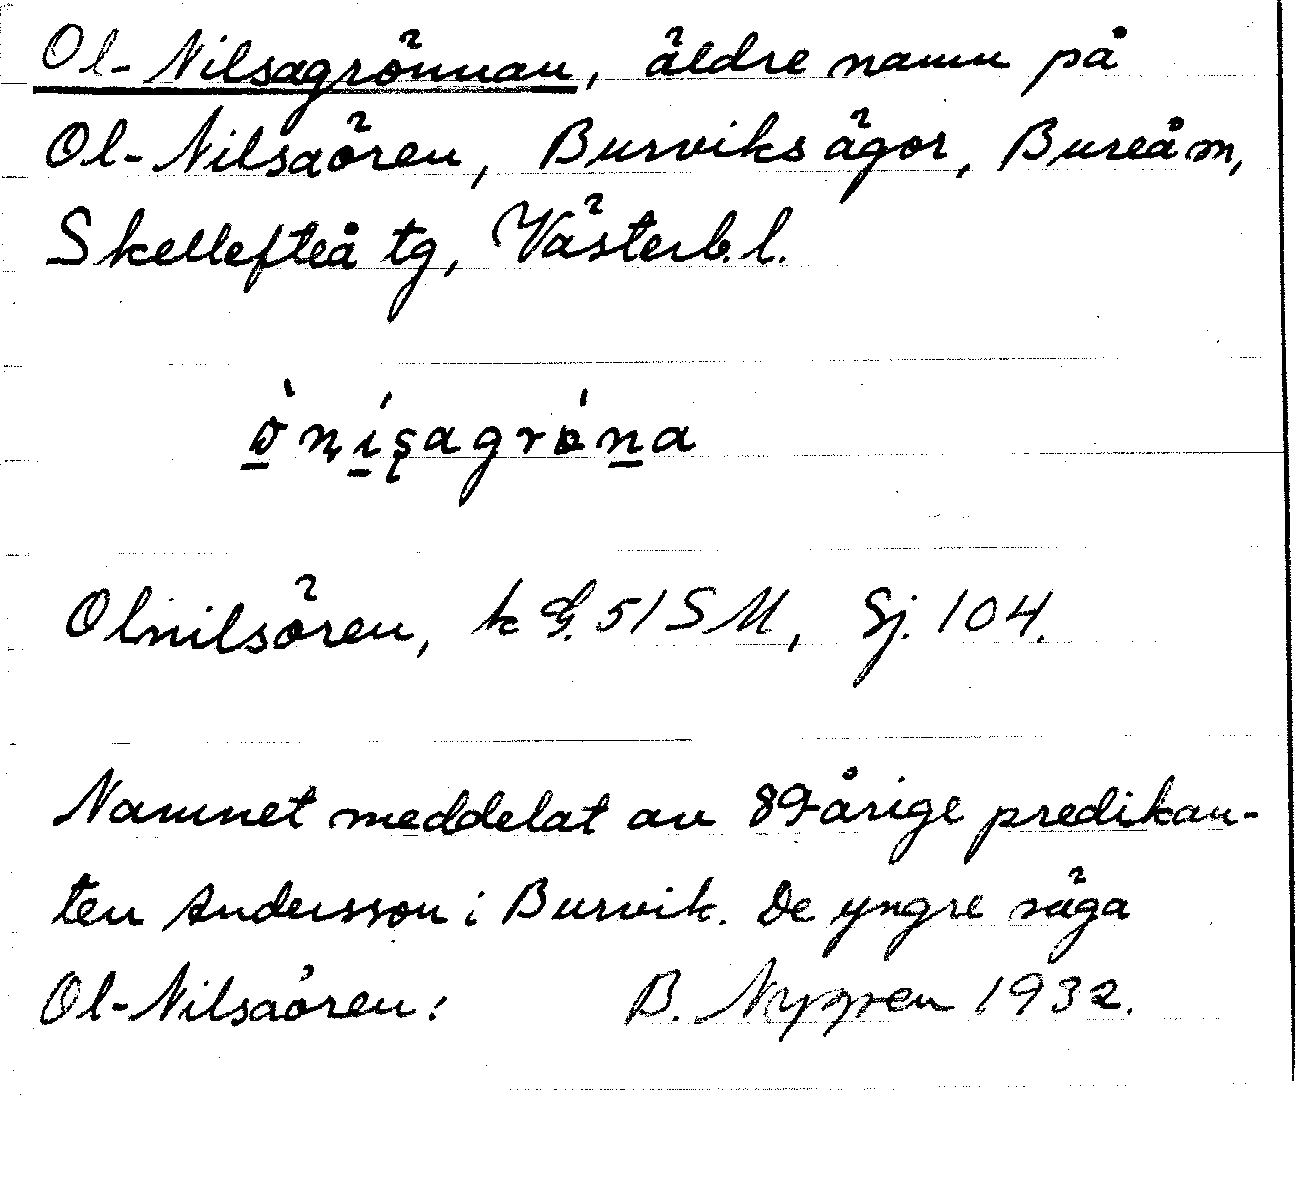 Ol-Nilsagrönnan, äldre namn på
Ol-Nilsaören, Burviks ägor, Bureå m,
Skellefteå tg, Västerb. l.
Olnilsören, k G. 51 S M, Sj. 104.
Namnet meddelat av 89-årige predikan-
ten Andersson i Burvik. De yngre säga
Ol-Nilsaören! B. Nyppen 1932.